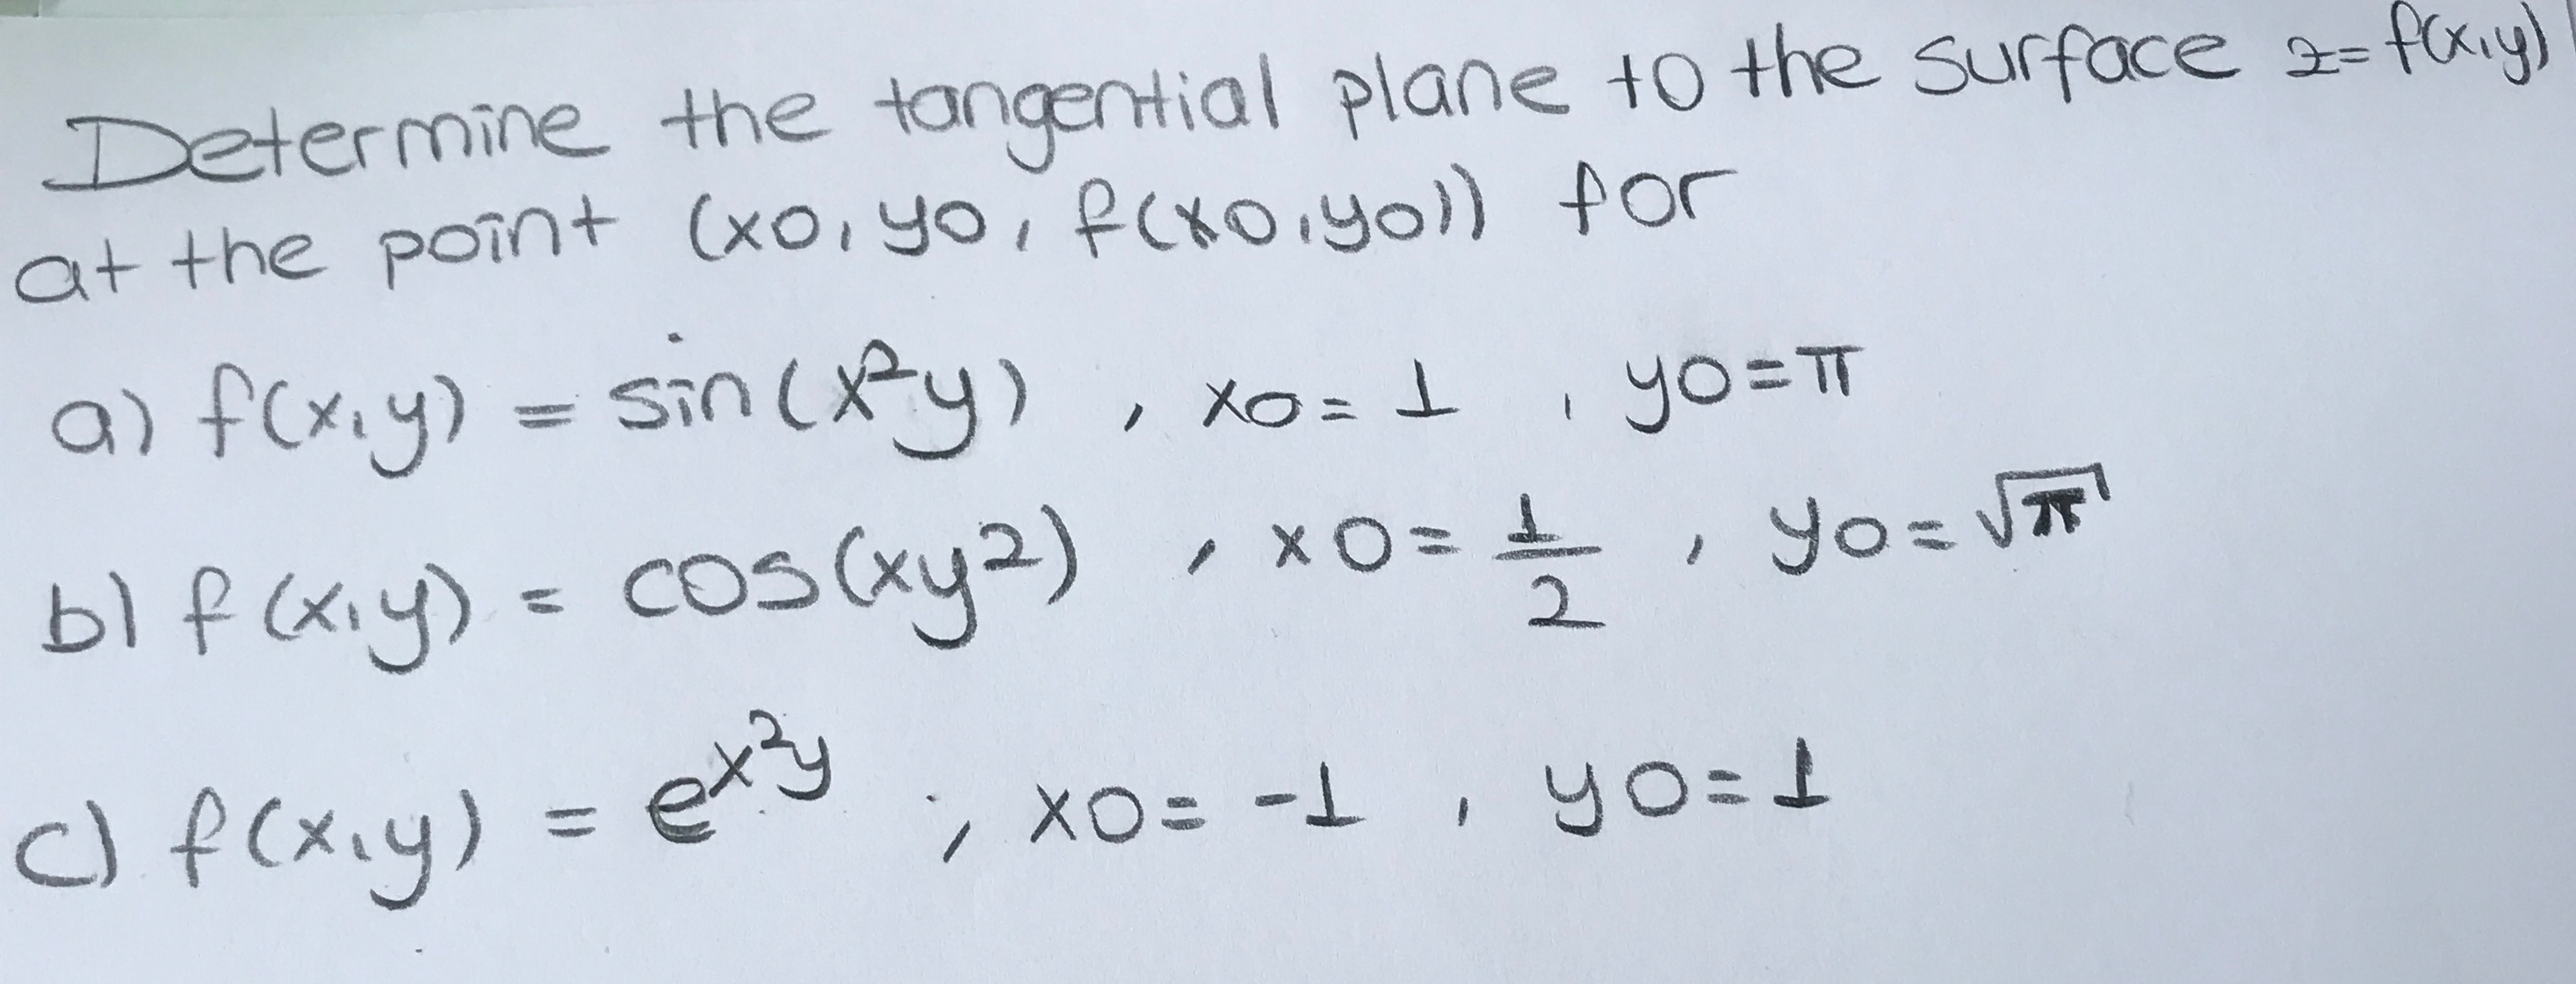 Determine the tangential plane to the surface z=f(x,y)
at the point (x0, y0, f(x0,y0)) for
a) f(x,y) = sin(x²y) , x0=1 , y0=π
b) f(x,y) = cos(xy2) , x0=1/2 , y0=√π
c) f(x,y) = e^x²y , x0=-1 , y0=1